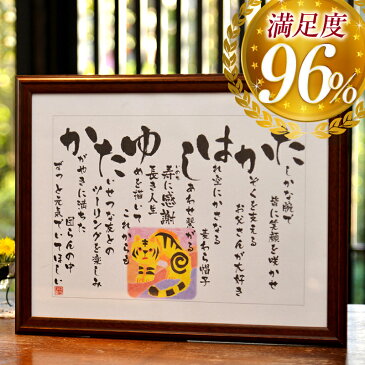 満足度
96%
たしかな腕で
皆に笑顔を咲かせ
かぞくを支える
お父さんが大好き
はれ空にかさなる
麦わら帽子
しあわせ繋がる
寿に感謝
いのち
長き人生
ゆめを描いて
これからも
たいせつな友との
ツーリングを楽しみ
かがやきに満ちた
団らんの中
ずっと元気でいてほしい